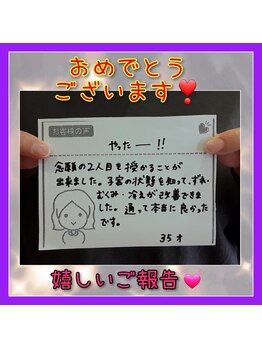 おめでとう
ございます❣
お客様の声
やったー!!
念願の2人目を授かることが
出来ました。子宮の状態を知って、ずれ・
むくみ・冷えが改善できま
した。通って本当に良かった
です。
35才
嬉しいご報告